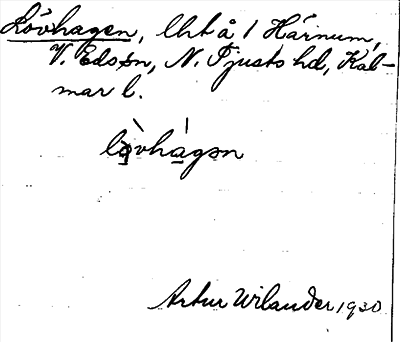 Lövhagen, lht å 1 Härnum,
V. Eds sn, N. Tjusts hd, Kal-
mar l.
lövhagən
Artur Wilander 1930